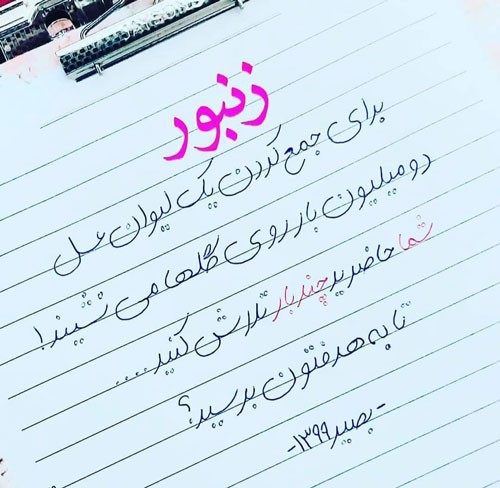 زنبور
برای جمع کردن یک لیوان عسل
دو میلیون بار روی گلها می نشیند!
شما حاضرید چند بار تلاش کنید....
تا به هدفتون برسید؟
-بصیر ۱۳۹۹-